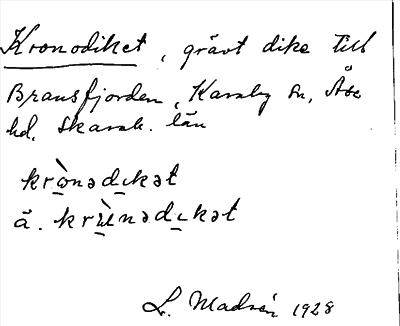 Kronodiket, grävt dike till
Bransfjorden, Karaby sn, Åse
hd, Skarab. län
krònədıkət
ä. krùnədıkət
L. Madsén 1928